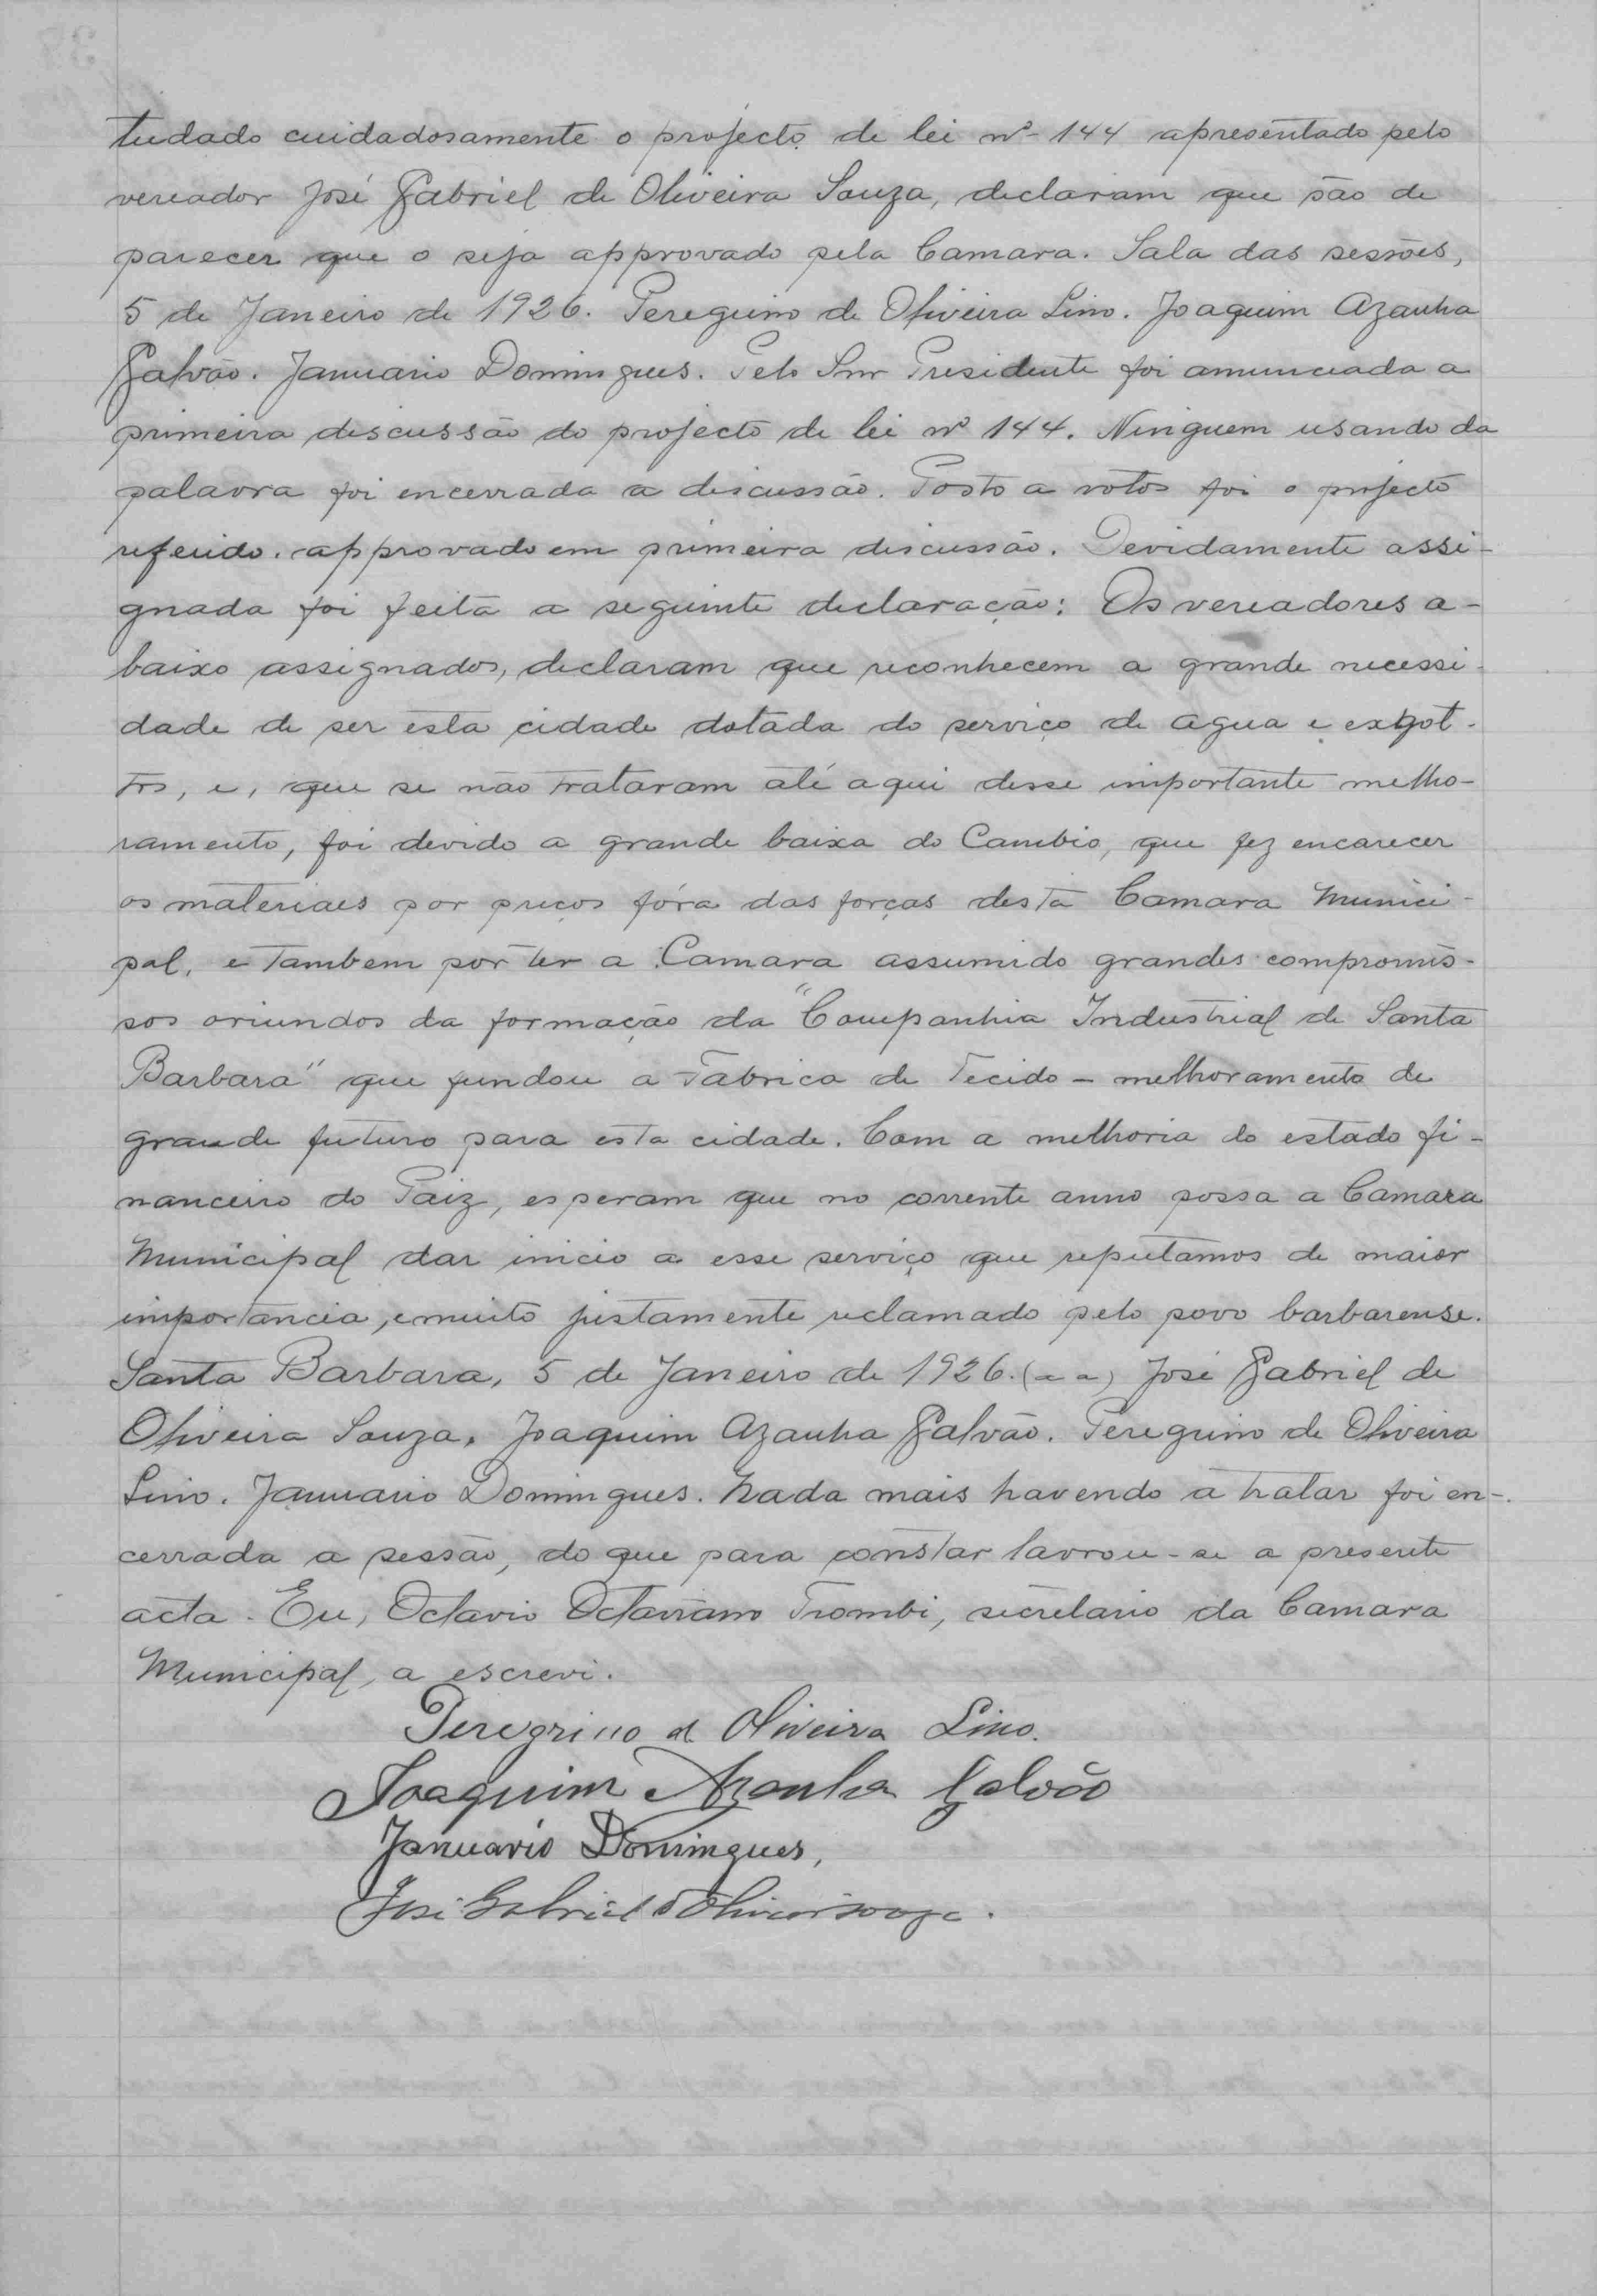 tudado cuidadosamente o projecto de lei nº 144 apresentado pelo
vereador José Gabriel de Oliveira Souza, declaram que são de
parecer que o seja approvado pela Camara. Sala das sessões,
5 de Janeiro de 1926. Peregrino de Oliveira Lino. Joaquim Azanha
Galvão. Januario Domingues. Pelo Snr Presidente foi annunciada a
primeira discussão do projecto de lei nº 144. Ninguem usando da
palavra foi encerrada a discussão. Posto a votos foi o projecto
referido approvado em primeira discussão. Devidamente assi-
gnada foi feita a seguinte declaração: Os vereadores a-
baixo assignados, declaram que reconhecem a grande necessi-
dade de ser esta cidade dotada do serviço de agua e exgot-
tos, e, que se não trataram até aqui desse importante melho-
ramento, foi devido a grande baixa do Cambio, que fez encarecer
os materiaes por preços fóra das forças desta Camara Munici-
pal, e tambem por ter a Camara assumido grandes compromis-
sos oriundos da formação da "Companhia Industrial de Santa
Barbara" que fundou a Fabrica de Tecido - melhoramento de
grande futuro para esta cidade. Com a melhoria do estado fi-
nanceiro do Paiz, esperam que no corrente anno possa a Camara
Municipal dar inicio a esse serviço que reputamos de maior
importancia, e muito justamente reclamado pelo povo barbarense.
Santa Barbara, 5 de Janeiro de 1926. (a a) José Gabriel de
Oliveira Souza. Joaquim Azanha Galvão. Peregrino de Oliveira
Lino. Januario Domingues. Nada mais havendo a tratar foi en-
cerrada a sessão, do que para constar lavrou-se a presente
acta. Eu, Octavio Octaviano Trombi, secretario da Camara
Municipal, a escrevi.
Peregrino d Oliveira Lino.
Joaquim Azanha Galvão
Januario Domingues,
José Gabriel d'Oliveira Souza.